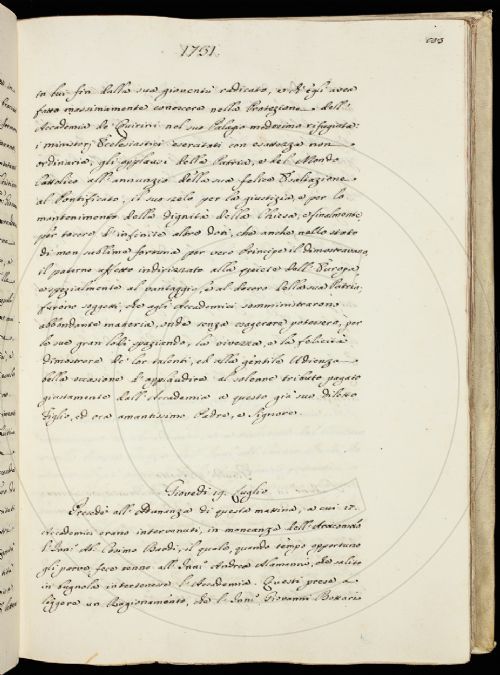 1731.
in lui fin dalla sua gioventù radicato, e ch'egli avea
fatto massimamente conoscere nella Protezione dell'
Accademia de' Quirini nel suo Palazo medesimo rifugiata:
i ministerj Ecclesiastici esercitati con esattezza non
ordinaria; gli applausi della Patria, e del Mondo
Cattolico all' annunzio della sua felice Esaltazione
al Pontificato, il suo zelo per la giustizia, e per lo
mantenimento della dignità della Chiesa, e finalmente
per tacere d' infinite altre doti, che anche nello stato
di men sublime fortuna per vero Principe il dimostravano,
il paterno affetto indirizzato alla quiete dell' Europa,
e spezialmente al vantaggio, e al decoro della sua Patria,
furono soggetti, che agli Accademici somministrarono
abbondante materia, onde senza esagerare potessero, per
le sue gran lodi spaziando, la vivezza, e la felicità
dimostrare de' lor talenti, ed alla gentile Udienza
bella occasione d' applaudire al solenne tributo pagato
giustamente dall' Accademia a questo già suo diletto
Figlio, ed ora amantissimo Padre, e Signore.
Giovedì 19. Luglio
Presedè all' Adunanza di questa mattina, a cui 12.
Accademici erano intervenuti, in mancanza dell' Arciconsolo
l' Inn.o Ab. Cosimo Bardi, il quale, quando tempo opportuno
gli parve fece cenno all' Inn.o Andrea Alamanni, che salito
in bugnola intertenesse l' Accademia. Questi prese a
leggere un Ragionamento, che l' Inn.o Giovanni Bottari